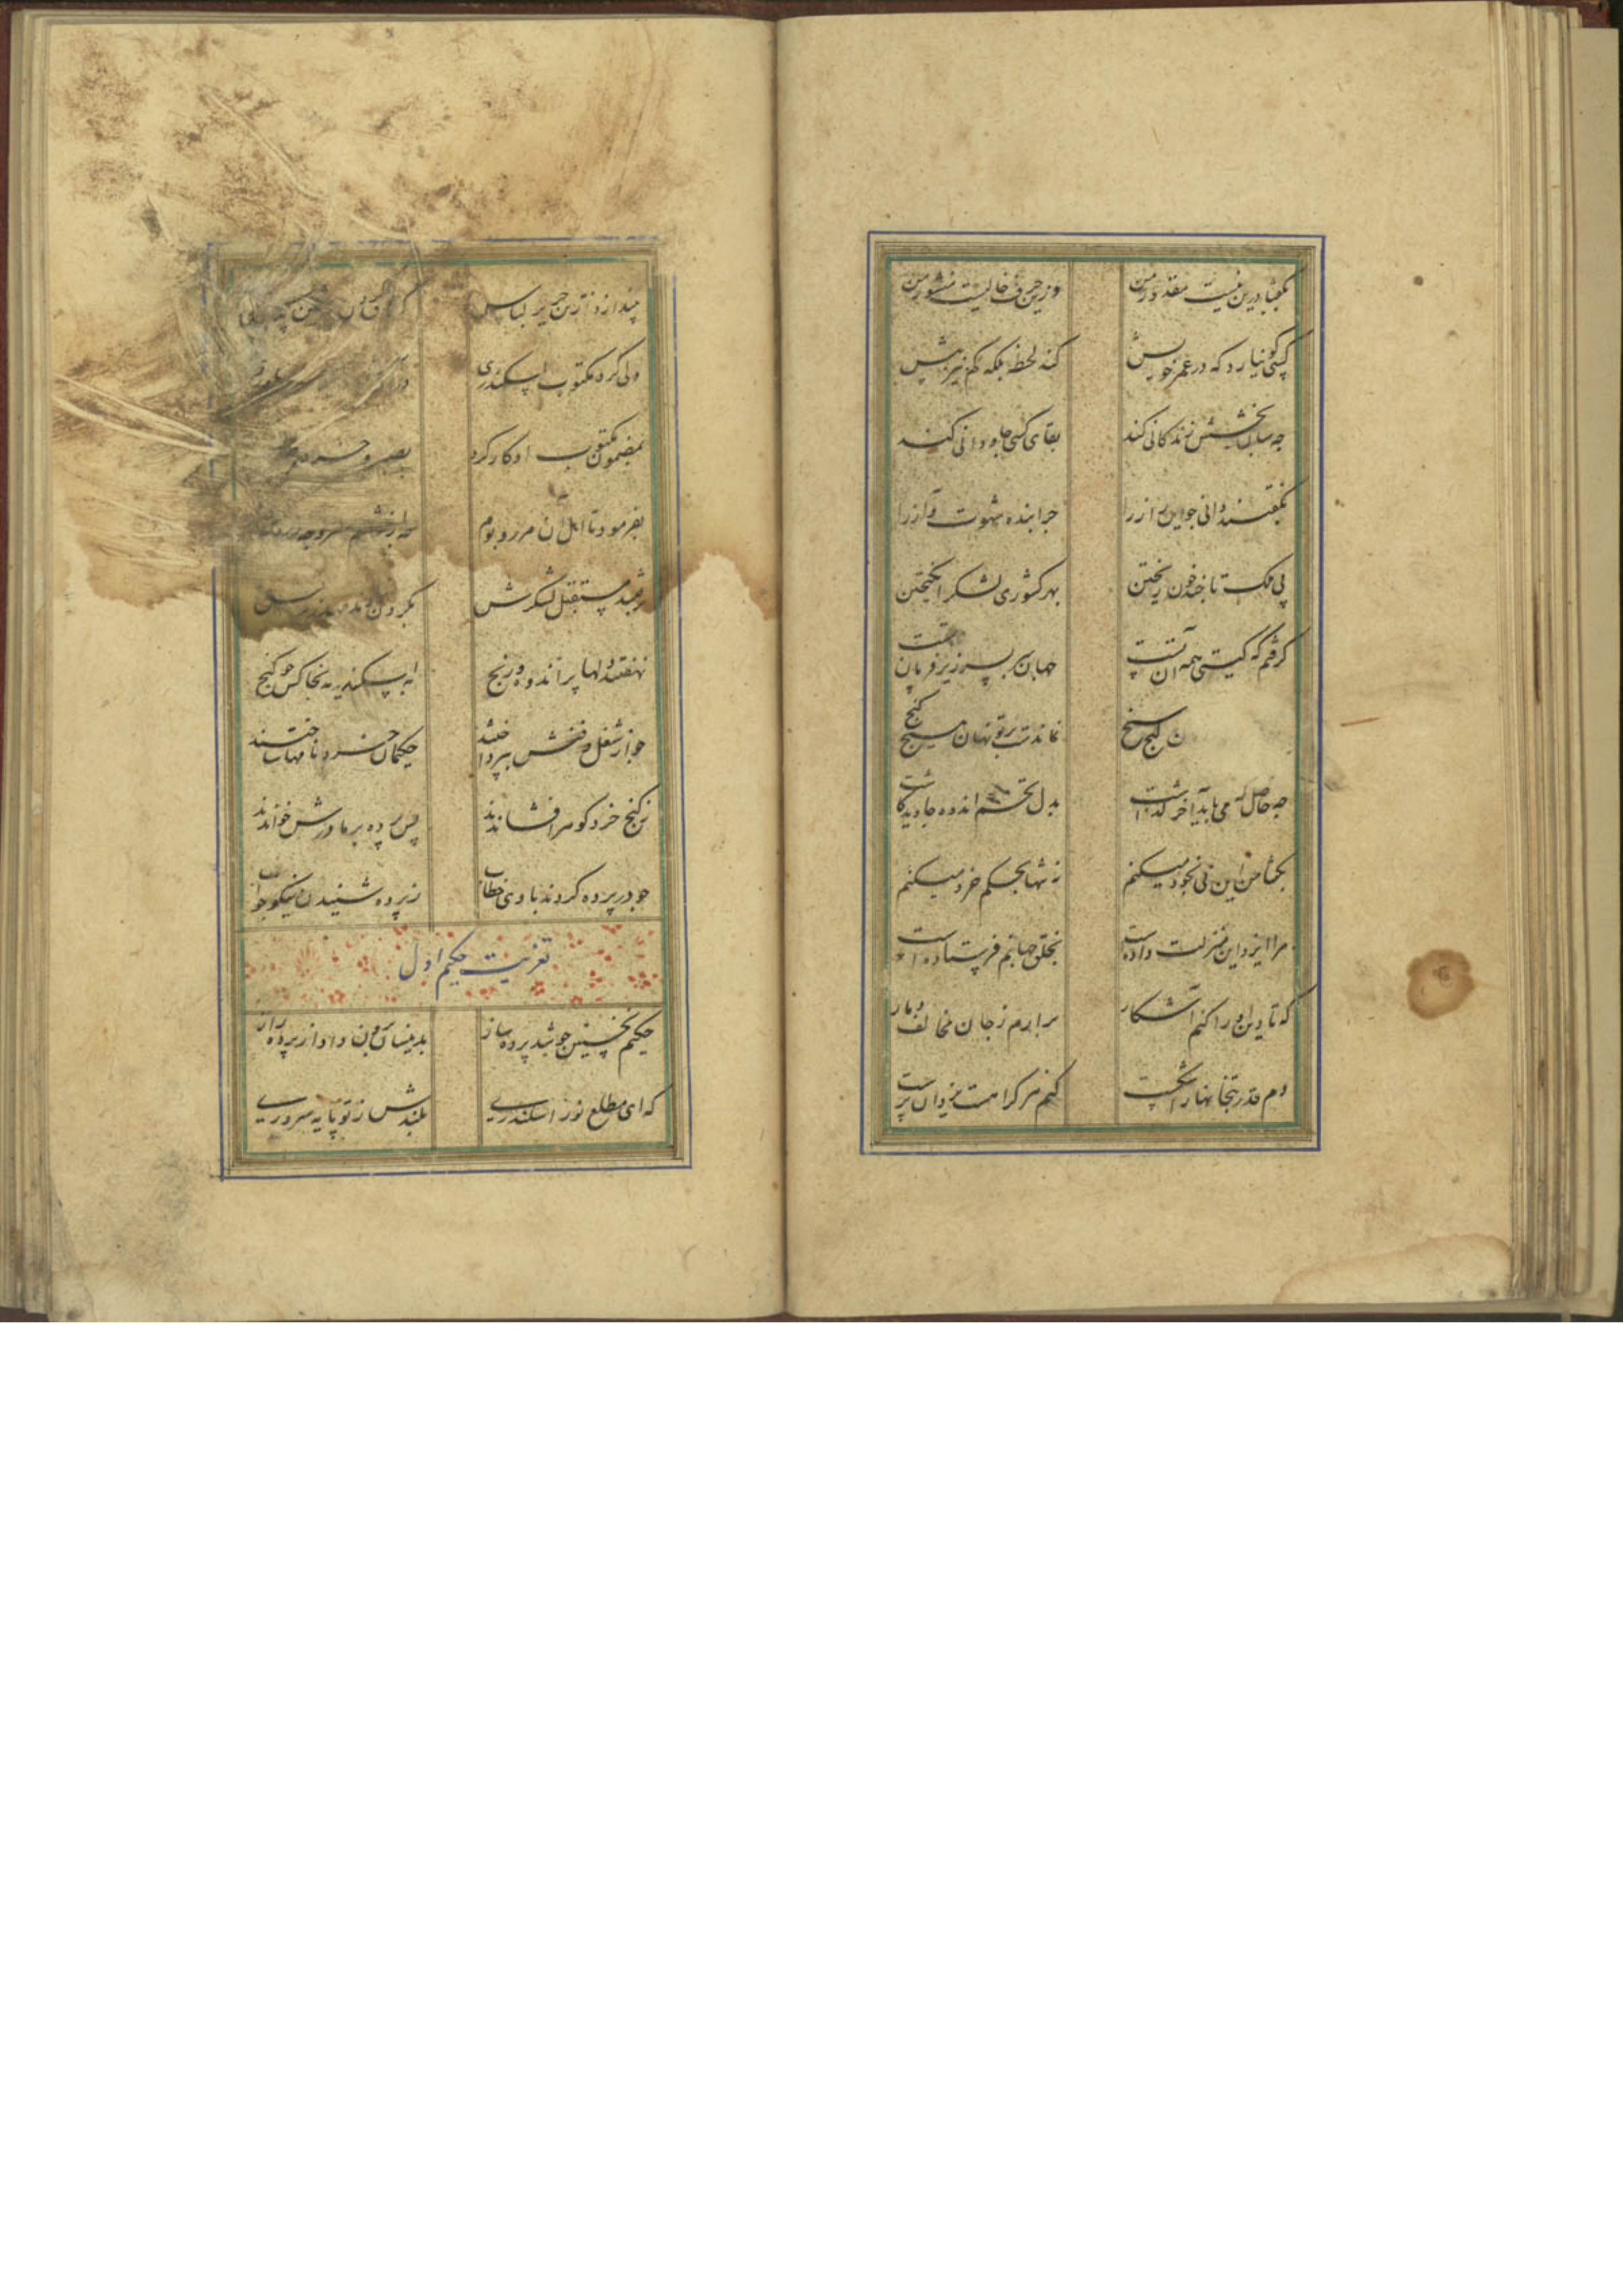 بگفتا درین نیست مقدور من وزین حرف خالیست منشور من
کسی کو نیارد که در عمر خویش کند لحظه بلکه کم نیز بیش
چه سان بخشش زندگانی کند بقای کسی جاودانی کند
بگفتند دانی جو این راز را جرا بنده شهوت و آز را
پی ملک تا جند خون ریختن بهر کشوری لشکر انکیختن
کرفتم که کیتی همه آن تست جهان سر بسر زیر فرمان تست
ن کنج سنج نماند بتو نهان هیچ کنج
جه حاصل که می باید آخر کذاشت بدل تخم اندوه جاوید کاشت
بگفتا من این نی بخود میکنم نه تنها بحکم خرد میکنم
مرا ایزد این منزلت داده است بخلق جهانم فرستاده است
که تا دین او را کنم آشکار برارم ز جان مخالف دمار
دهم قدر بتخانها را شکست کنم هر کرا هست یزدان پرست
لباس
ولی کرد مکتوب اسکندری
بمضمون مکتوب او کار کرد بصبر و خرد
بفرمود تا اهل آن مرز و بوم
شد مستقبل لشکرش بکردن
نهفتند دلها پر اندوه و رنج به اسکندریه بخاکش جو کنج
جو از شغل دفنش بپرداختند حکیمان خردنامها ساختند
ز کنج خرد کوهر افشاندند پس پرده بر مادرش خواندند
جو در پرده کردند با وی خطاب ز پرده شنیدند نیکو جواب
تعزیت حکیم اول
حکیم نخستین جو شد پرده ساز بدینسان برون داد از پرده راز
که ای مطلع نور اسکندری بلندش ز تو پایه سروری